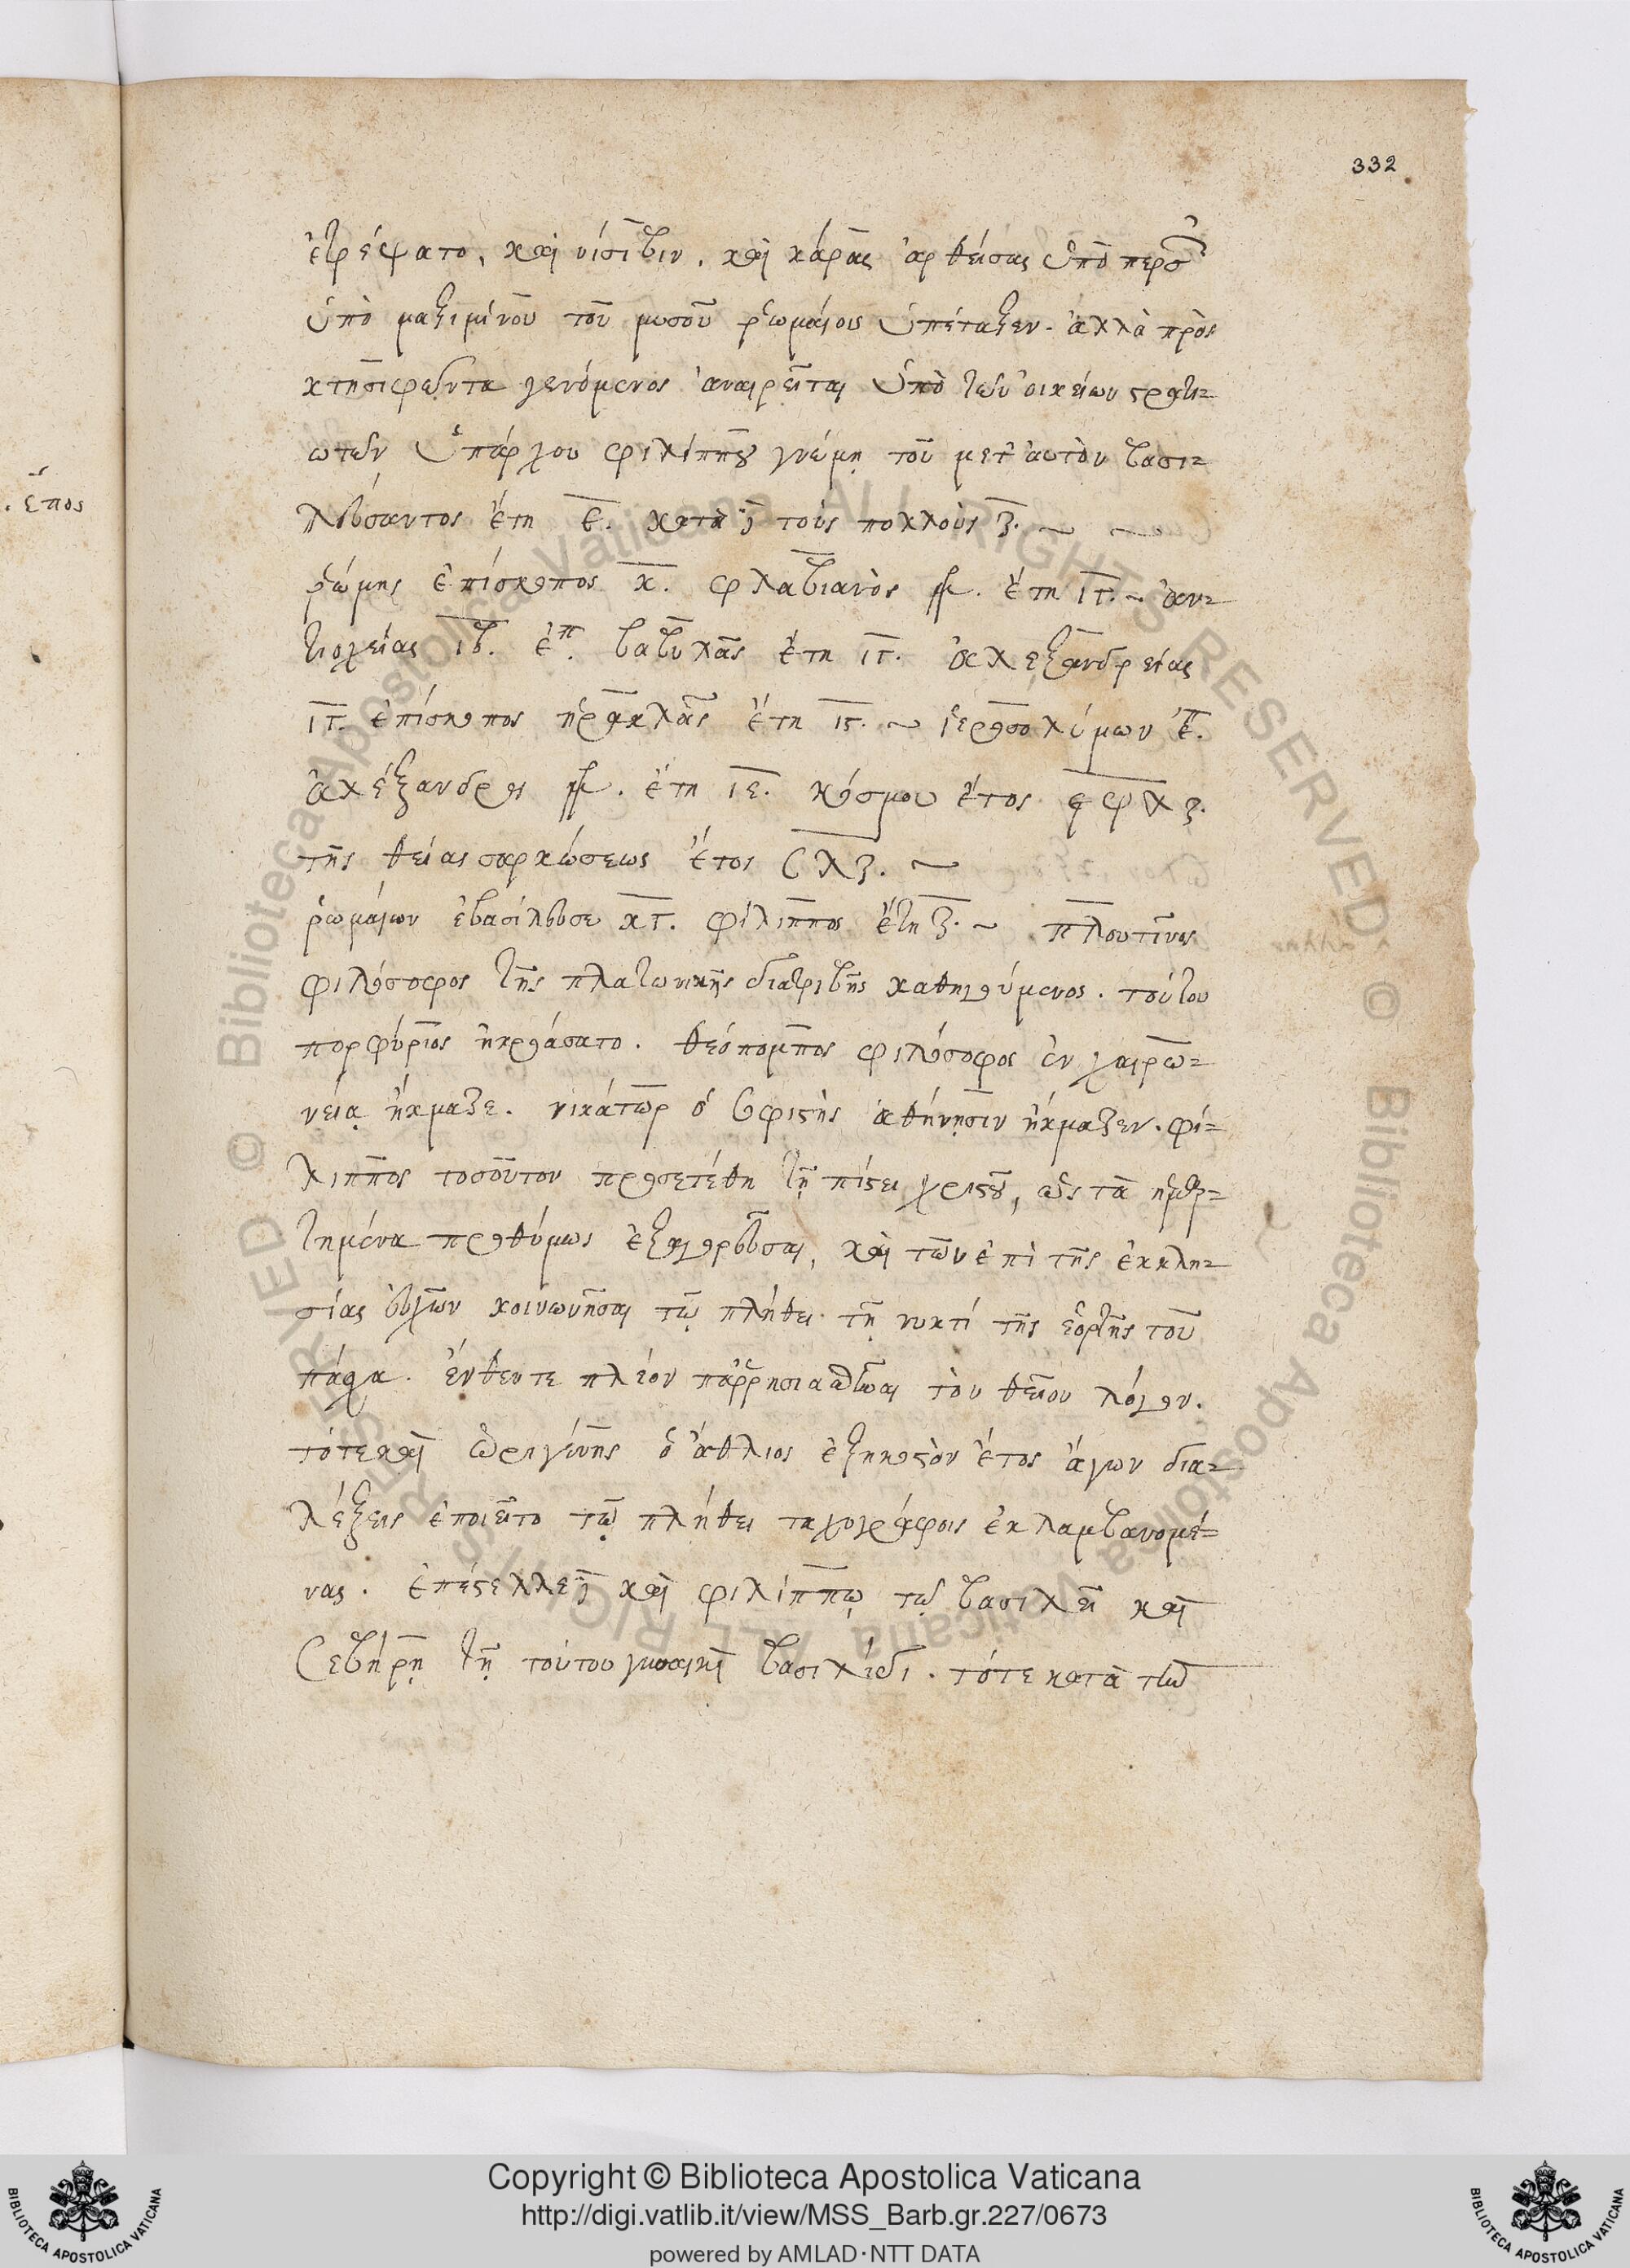 332
ἐτρέψατο, καὶ νίσιβιν. καὶ κάρας ἀρθείσας ὑπὸ περσῶν
ὑπὸ μαξιμίνου τοῦ μυσοῦ ῥωμαίοις ὑπέταξεν. ἀλλὰ πρὸς
κτησιφῶντα γενόμενος ἀναιρεῖται ὑπὸ τῶν οἰκείων στρατι-
ωτῶν ὑπάρχου φιλίππου γνώμῃ τοῦ μετ' αὐτὸν βασι-
λεύσαντος ἔτη ε. κατὰ δὲ τοὺς πολλοὺς ζ. ~ ~
ῥώμης ἐπίσκοπος κ. φλαβιανὸς ἔτη ιγ. ~ ἀν-
τιοχείας ιβ. ἐπ. βαβυλᾶς ἔτη ιγ. ἀλεξανδρείας
ιγ. ἐπίσκοπος ἡρακλᾶς ἔτη ις. ~ ἱεροσολύμων ἐπ.
ἀλέξανδρος ἔτη ιε. κόσμου ἔτος ϛφλζ.
τῆς θείας σαρκώσεως ἔτος σλζ. ~
ῥωμαίων ἐβασίλευσε κγ. φίλιππος ἔτη ζ. ~ πλουτῖνος
φιλόσοφος τῆς πλατωνικῆς διατριβῆς καθηγούμενος. τούτου
πορφύριος ἠκροάσατο. θεόπομπος φιλόσοφος ἐν χαιρω-
νείᾳ ἤκμαζε. νικάτωρ ὁ σοφιστὴς ἀθήνησιν ἤκμαζεν. φί-
λιππος τοσοῦτον προσετέθη τῇ πίστει χριστοῦ, ὡς τὰ ἡμαρ-
τημένα προθύμως ἐξαγορεῦσαι, καὶ τῶν ἐπὶ τῆς ἐκκλη-
σίας εὐχῶν κοινωνῆσαι τῷ πλήθει τῇ νυκτὶ τῆς ἑορτῆς τοῦ
πάσχα. ἐνθεντε πλέον παρρησιασθῆναι τὸν θεῖον λόγον.
τότε καὶ ὠριγένης ὁ ἄθλιος ἑξηκοστὸν ἔτος ἄγων δια-
λέξεις ἐποιεῖτο τῷ πλήθει ταχυγράφοις ἐκλαμβανομέ-
νας. ἐπέστελλε δὲ καὶ φιλίππῳ τῷ βασιλεῖ καὶ
σεβήρῃ τῇ τούτου γυναικὶ βασιλίδι. τότε κατὰ τὴν
Copyright © Biblioteca Apostolica Vaticana
http://digi.vatlib.it/view/MSS_Barb.gr.227/0673
powered by AMLAD·NTT DATA